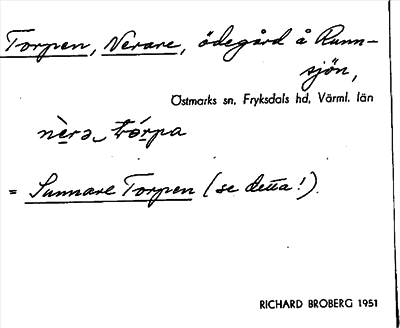 Torpen, Nerare, ödegård å Runn-
sjön,
Östmarks sn, Fryksdals hd, Värml. län
nèrə tǻrpa
= Sunnare Torpen (se detta!).
RICHARD BROBERG 1951